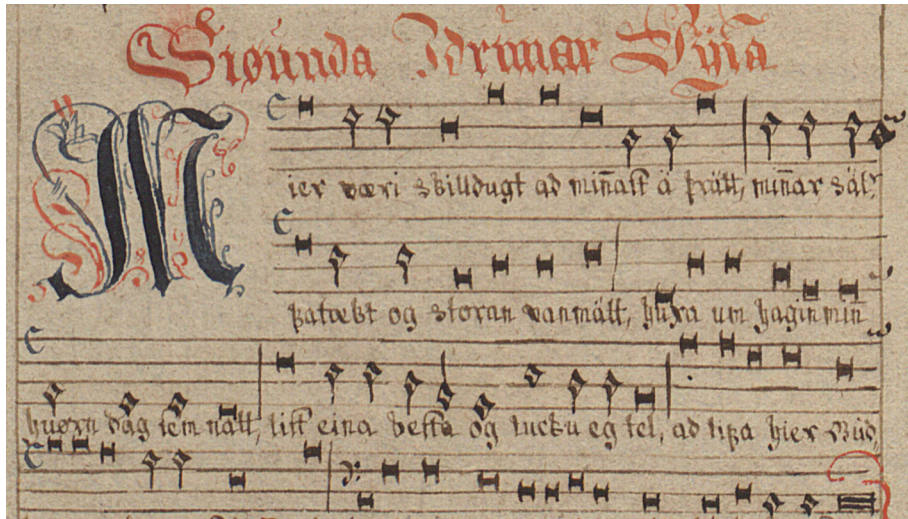 Siounda Idrunar Vÿsa
Mier væri skilldugt ad minast ä þrätt, minar säl
fatækt og storan vanmätt, huxa um haginn min
huorn dag sem nätt, list eina besta og lucku eg tel, ad lifa hier Gud,